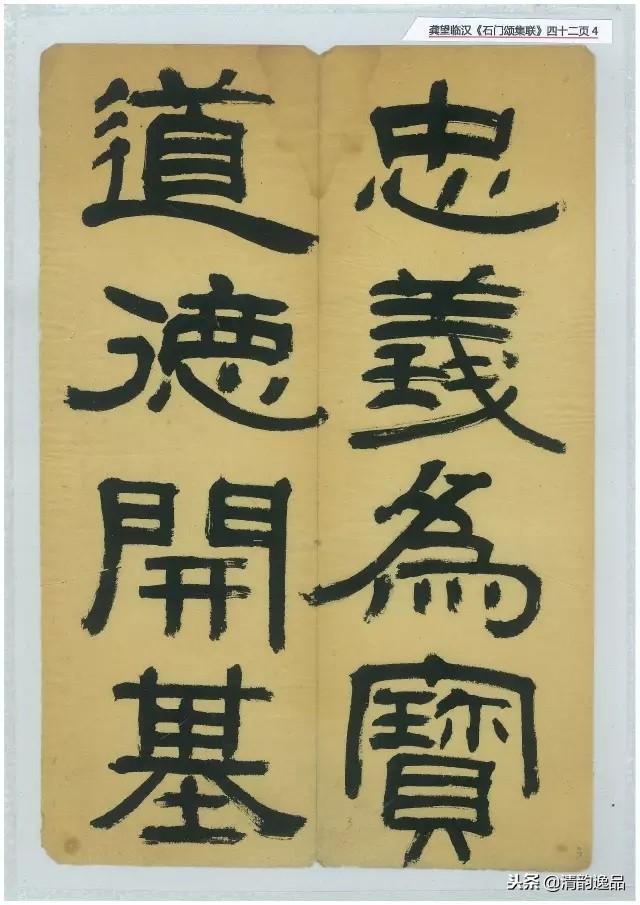 龚望临汉《石门颂集联》四十二页 4
忠義為寶
道德開基
头条 @清韵逸品